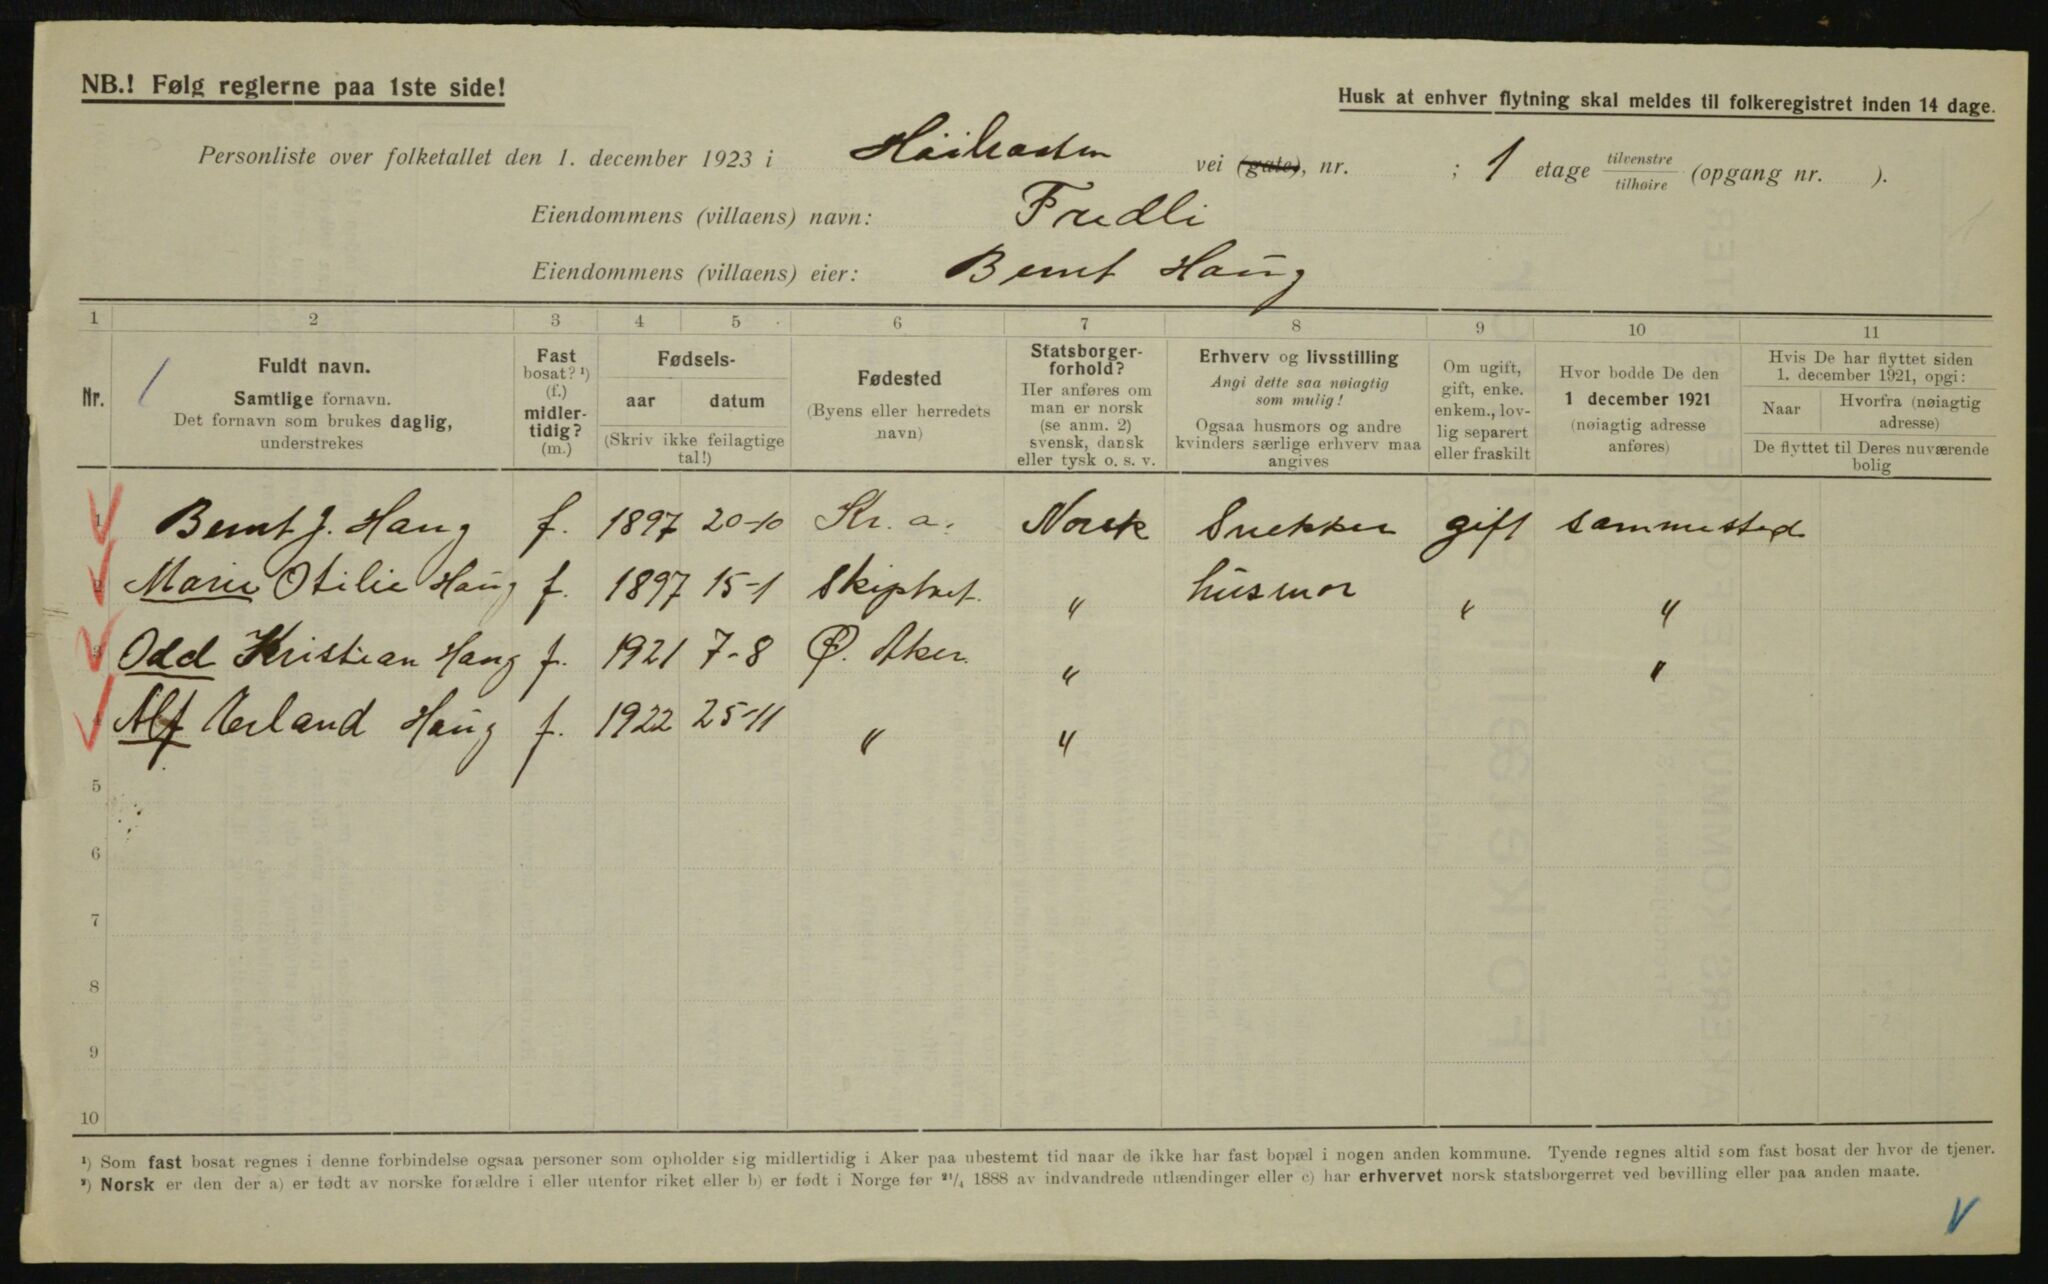 NB.! Følg reglerne paa 1ste side!
Husk at enhver flytning skal meldes til folkeregistret inden 14 dage.
Personliste over folketallet den 1. december 1923 i vei (gate), nr. ; 1 etage tilvenstre tilhøire (opgang nr. ).
Eiendommens (villaens) navn: Fredli
Eiendommens (villaens) eier: Bernt Haug
1 2 3 4 5 6 7 8 9 10 11
Nr.
Fuldt navn.
Samtlige fornavn.
Det fornavn som brukes daglig,
understrekes
Fast
bosat? ¹)
(f.)
midler-
tidig?
(m.)
Fødsels-
aar datum
(Skriv ikke feilagtige
tal!)
Fødested
(Byens eller herredets
navn)
Statsborger-
forhold?
Her anføres om
man er norsk
(se anm. 2)
svensk, dansk
eller tysk o. s. v.
Erhverv og livsstilling
Angi dette saa nøiagtig
som mulig!
Ogsaa husmors og andre
kvinders særlige erhverv maa
angives
Om ugift,
gift, enke.
enkem., lov-
lig separert
eller fraskilt
Hvor bodde De den
1 december 1921
(nøiagtig adresse
anføres)
Hvis De har flyttet siden
1. december 1921, opgi:
Naar
Hvorfra (nøiagtig
adresse)
De flyttet til Deres nuværende
bolig
1 Bernt J. Haug f. 1897 20-10 Kr. a. Norsk Snekker gift sammested
2 Marie Otilie Haug f. 1897 15-1 Skiptvet. " husmor " "
3 Odd Kristian Haug f. 1921 7-8 Ø. Aker. " "
4 Alf Erland Haug f. 1922 25-11 " "
5
6
7
8
9
10
¹) Som fast bosat regnes i denne forbindelse ogsaa personer som opholder sig midlertidig i Aker paa ubestemt tid naar de ikke har fast bopæl i nogen anden kommune. Tyende regnes altid som fast bosat der hvor de tjener.
²) Norsk er den der a) er født av norske forældre i eller utenfor riket eller b) er født i Norge før ²¹/₄ 1888 av indvandrede utlændinger eller c) har erhvervet norsk statsborgerret ved bevilling eller paa anden maate.